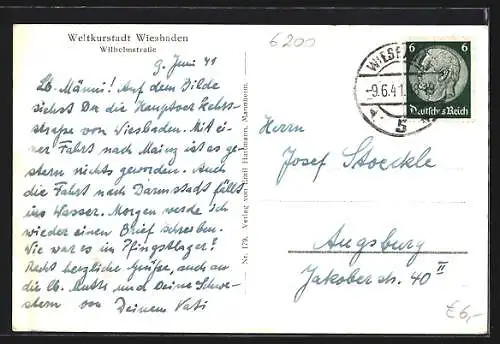 Weltkurstadt Wiesbaden
Wilhelmstraße
6200
9. Juni 41
Lb. Männi! Auf dem Bilde
siehst Du die Hauptverkehrs-
strasse von Wiesbaden. Mit ei-
ner Fahrt nach Mainz ist es ge-
stern nichts geworden. Auch
die Fahrt nach Darmstadt fällt
ins Wasser. Morgen werde ich
wieder einen Brief schreiben.
Wie war es im Pfingstlager?
Recht herzliche Grüsse, auch an
die lb. Mutti und Deine Schwe-
stern von Deinem Vati
Nr. 179. Verlag von Emil Hartmann, Mannheim.
WIESBADEN
-9.6.41.
5
6 6
Deutsches Reich
Herrn
Josef Stoeckle
Augsburg
Jakoberstr. 40 II
€6,-